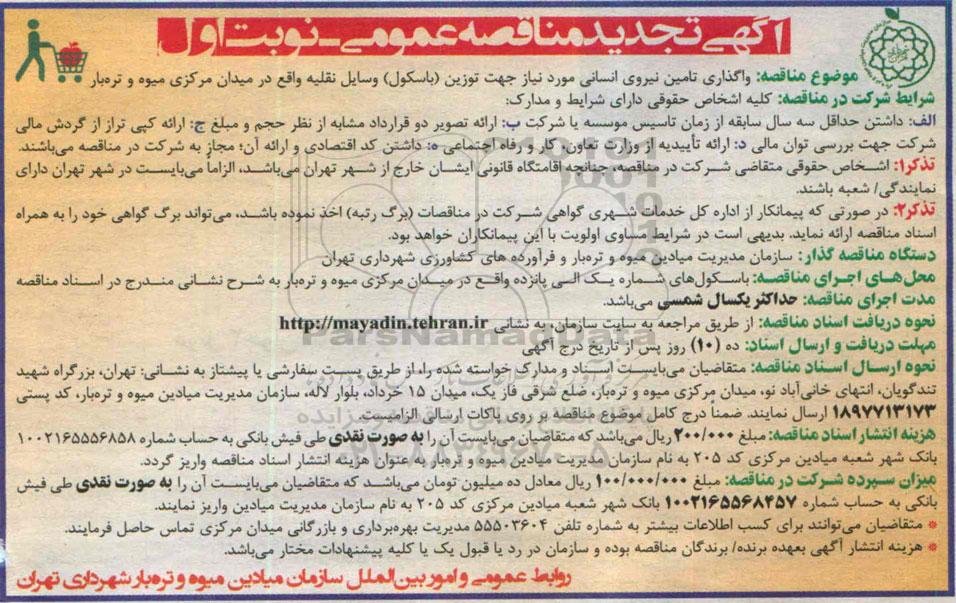 آگهی تجدید مناقصه عمومی_نوبت اول
موضوع مناقصه: واگذاری تامین نیروی انسانی مورد نیاز جهت توزین (باسکول) وسایل نقلیه واقع در میدان مرکزی میوه و تره‌بار
شرایط شرکت در مناقصه: کلیه اشخاص حقوقی دارای شرایط و مدارک:
الف: داشتن حداقل سه سال سابقه از زمان تاسیس موسسه یا شرکت ب: ارائه تصویر دو قرارداد مشابه از نظر حجم و مبلغ ج: ارائه کپی تراز از گردش مالی
شرکت جهت بررسی توان مالی د: ارائه تأییدیه از وزارت تعاون، کار و رفاه اجتماعی ه: داشتن کد اقتصادی و ارائه آن؛ مجاز به شرکت در مناقصه می‌باشند.
تذکر۱: اشخاص حقوقی متقاضی شرکت در مناقصه، چنانچه اقامتگاه قانونی ایشان خارج از شهر تهران می‌باشد، الزاماً می‌بایست در شهر تهران دارای
نمایندگی/ شعبه باشند.
تذکر۲: در صورتی که پیمانکار از اداره کل خدمات شهری گواهی شرکت در مناقصات (برگ رتبه) اخذ نموده باشد، می‌تواند برگ گواهی خود را به همراه
اسناد مناقصه ارائه نماید. بدیهی است در شرایط مساوی اولویت با این پیمانکاران خواهد بود.
دستگاه مناقصه گذار: سازمان مدیریت میادین میوه و تره‌بار و فرآورده های کشاورزی شهرداری تهران
محل‌های اجرای مناقصه: باسکول‌های شماره یک الی پانزده واقع در میدان مرکزی میوه و تره‌بار به شرح نشانی مندرج در اسناد مناقصه
مدت اجرای مناقصه: حداکثر یکسال شمسی می‌باشد.
نحوه دریافت اسناد مناقصه: از طریق مراجعه به سایت سازمان، به نشانی http://mayadin.tehran.ir
مهلت دریافت و ارسال اسناد: ده (۱۰) روز پس از تاریخ درج آگهی
نحوه ارسال اسناد مناقصه: متقاضیان می‌بایست اسناد و مدارک خواسته شده را، از طریق پست سفارشی یا پیشتاز به نشانی: تهران، بزرگراه شهید
تندگویان، انتهای خانی‌آباد نو، میدان مرکزی میوه و تره‌بار، ضلع شرقی فاز یک، میدان ۱۵ خرداد، بلوار لاله، سازمان مدیریت میادین میوه و تره‌بار، کد پستی
۱۸۹۷۷۱۳۱۷۳ ارسال نمایند. ضمناً درج کامل موضوع مناقصه بر روی پاکات ارسالی الزامیست.
هزینه انتشار اسناد مناقصه: مبلغ ۲۰۰/۰۰۰ ریال می‌باشد که متقاضیان می‌بایست آن را به صورت نقدی طی فیش بانکی به حساب شماره ۱۰۰۲۱۶۵۵۵۶۸۵۸
بانک شهر شعبه میادین مرکزی کد ۲۰۵ به نام سازمان مدیریت میادین میوه و تره‌بار به عنوان هزینه انتشار اسناد مناقصه واریز گردد.
میزان سپرده شرکت در مناقصه: مبلغ ۱۰۰/۰۰۰/۰۰۰ ریال معادل ده میلیون تومان می‌باشد که متقاضیان می‌بایست آن را به صورت نقدی طی فیش
بانکی به حساب شماره ۱۰۰۲۱۶۵۵۶۸۴۵۷ بانک شهر شعبه میادین مرکزی کد ۲۰۵ به نام سازمان مدیریت میادین واریز نمایند.
* متقاضیان می‌توانند برای کسب اطلاعات بیشتر به شماره تلفن ۵۵۵۰۳۶۰۴ مدیریت بهره‌برداری و بازرگانی میدان مرکزی تماس حاصل فرمایند.
* هزینه انتشار آگهی بعهده برنده/ برندگان مناقصه بوده و سازمان در رد یا قبول یک یا کلیه پیشنهادات مختار می‌باشد.
روابط عمومی و امور بین‌الملل سازمان میادین میوه و تره‌بار شهرداری تهران
ParsNamadData